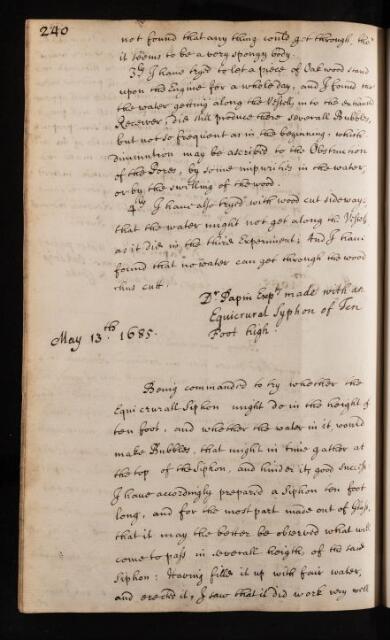 240
not found that any thing could get through, tho'
it seems to be a very spongy body.
3ly I have tryd to let a piece of Oak wood stand
upon the Engine for a whole day, and I found that
the water getting along the Vessels, in to the exhausted
Receiver, did still produce there severall Bubbles,
but not so frequent as in the beginning, which
diminution may be ascribed to the Obstruction
of the Pores, by some impurities in the water,
or by the swelling of the wood.
4ly I have also tryd with wood cut sideway,
that the water might not get along the Vessels
as it did in the third Experiment; And I have
found that no water can get through the wood
thus cutt.
Dr Papin Expt. made with an
Equicrural Syphon of Ten
Foot high.
May 13.th 1685.
Being commanded to try whether the
Equicrurall Siphon might do in the height of
ten foot, and whether the water in it, would
make Bubbles, that might in time gather at
the top of the Siphon, and hinder its good success.
I have accordingly prepared a Siphon ten foot
long, and for the most part made out of Glass,
that it may the better be observed what will
come to pass in severall heigth, of the said
Siphon: Having filled it up with fair water,
and erected it, I saw that it did work very well